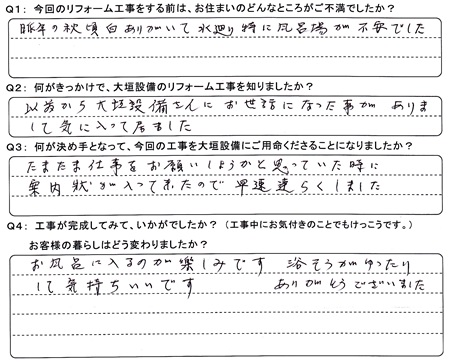 Q1: 今回のリフォーム工事をする前は、お住まいのどんなところがご不満でしたか?
昨年の秋頃白ありがいて水廻り特に風呂場が不安でした
Q2: 何がきっかけで、大垣設備のリフォーム工事を知りましたか?
以前から大垣設備さんにお世話になった事がありま
して気に入って居ました
Q3: 何が決め手となって、今回の工事を大垣設備にご用命くださることになりましたか?
たまたま仕事をお願いしようかと思っていた時に
案内状が入って来たので早速連らくしました
Q4: 工事が完成してみて、いかがでしたか? (工事中にお気付きのことでもけっこうです。)
お客様の暮らしはどう変わりましたか?
お風呂に入るのが楽しみです 浴そうがゆったり
して気持ちいいです ありがとうございました